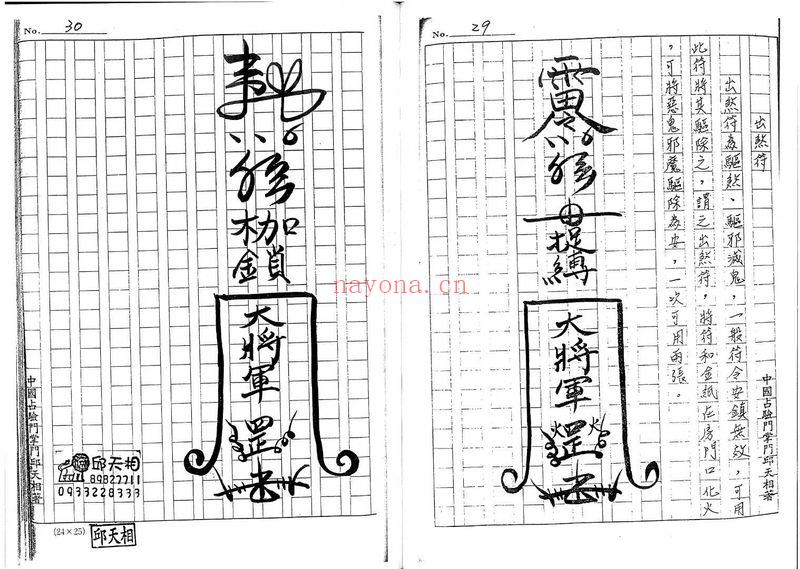 No. 29
出煞符
出煞符為驅煞、驅邪滅鬼,一般符令安鎮無效,可用
此符將其驅除之,謂之出煞符,將符和金紙在房門口化火
,可將惡鬼邪魔驅除為安,一次可用兩張。
捉縛
大將軍罡
火 火
中國占驗門掌門邱天相著
No. 30
枷鎖
大將軍罡
中國占驗門掌門邱天相著
邱天相
89827711
0933228333
(24×25)
邱天相
nayona.cn